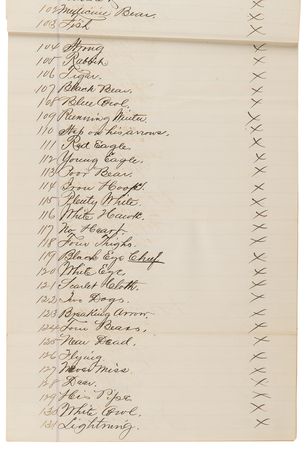 102 Medicine Bear. X
103 Fish X
104 Strong X
105 Rabbit X
106 Tiger. X
107 Black Bear. X
108 Blue Owl. X
109 Running X
110 Step on his arrows. X
111 Red Eagle X
112 Young Eagle. X
113 Poor Bear. X
114 Iron Hoop. X
115 Plenty White. X
116 White Hawk. X
117 No Heart. X
118 Four Thighs. X
119 Black Eye Chief X
120 White Eye X
121 Scarlet Cloth. X
122 Two Dogs. X
123 Breaking Arrow. X
124 Four Bears. X
125 Near Dead. X
126 Flying X
127 Miss. X
128 Deer. X
129 His Pipe X
130 White Owl. X
131 Lightning. X